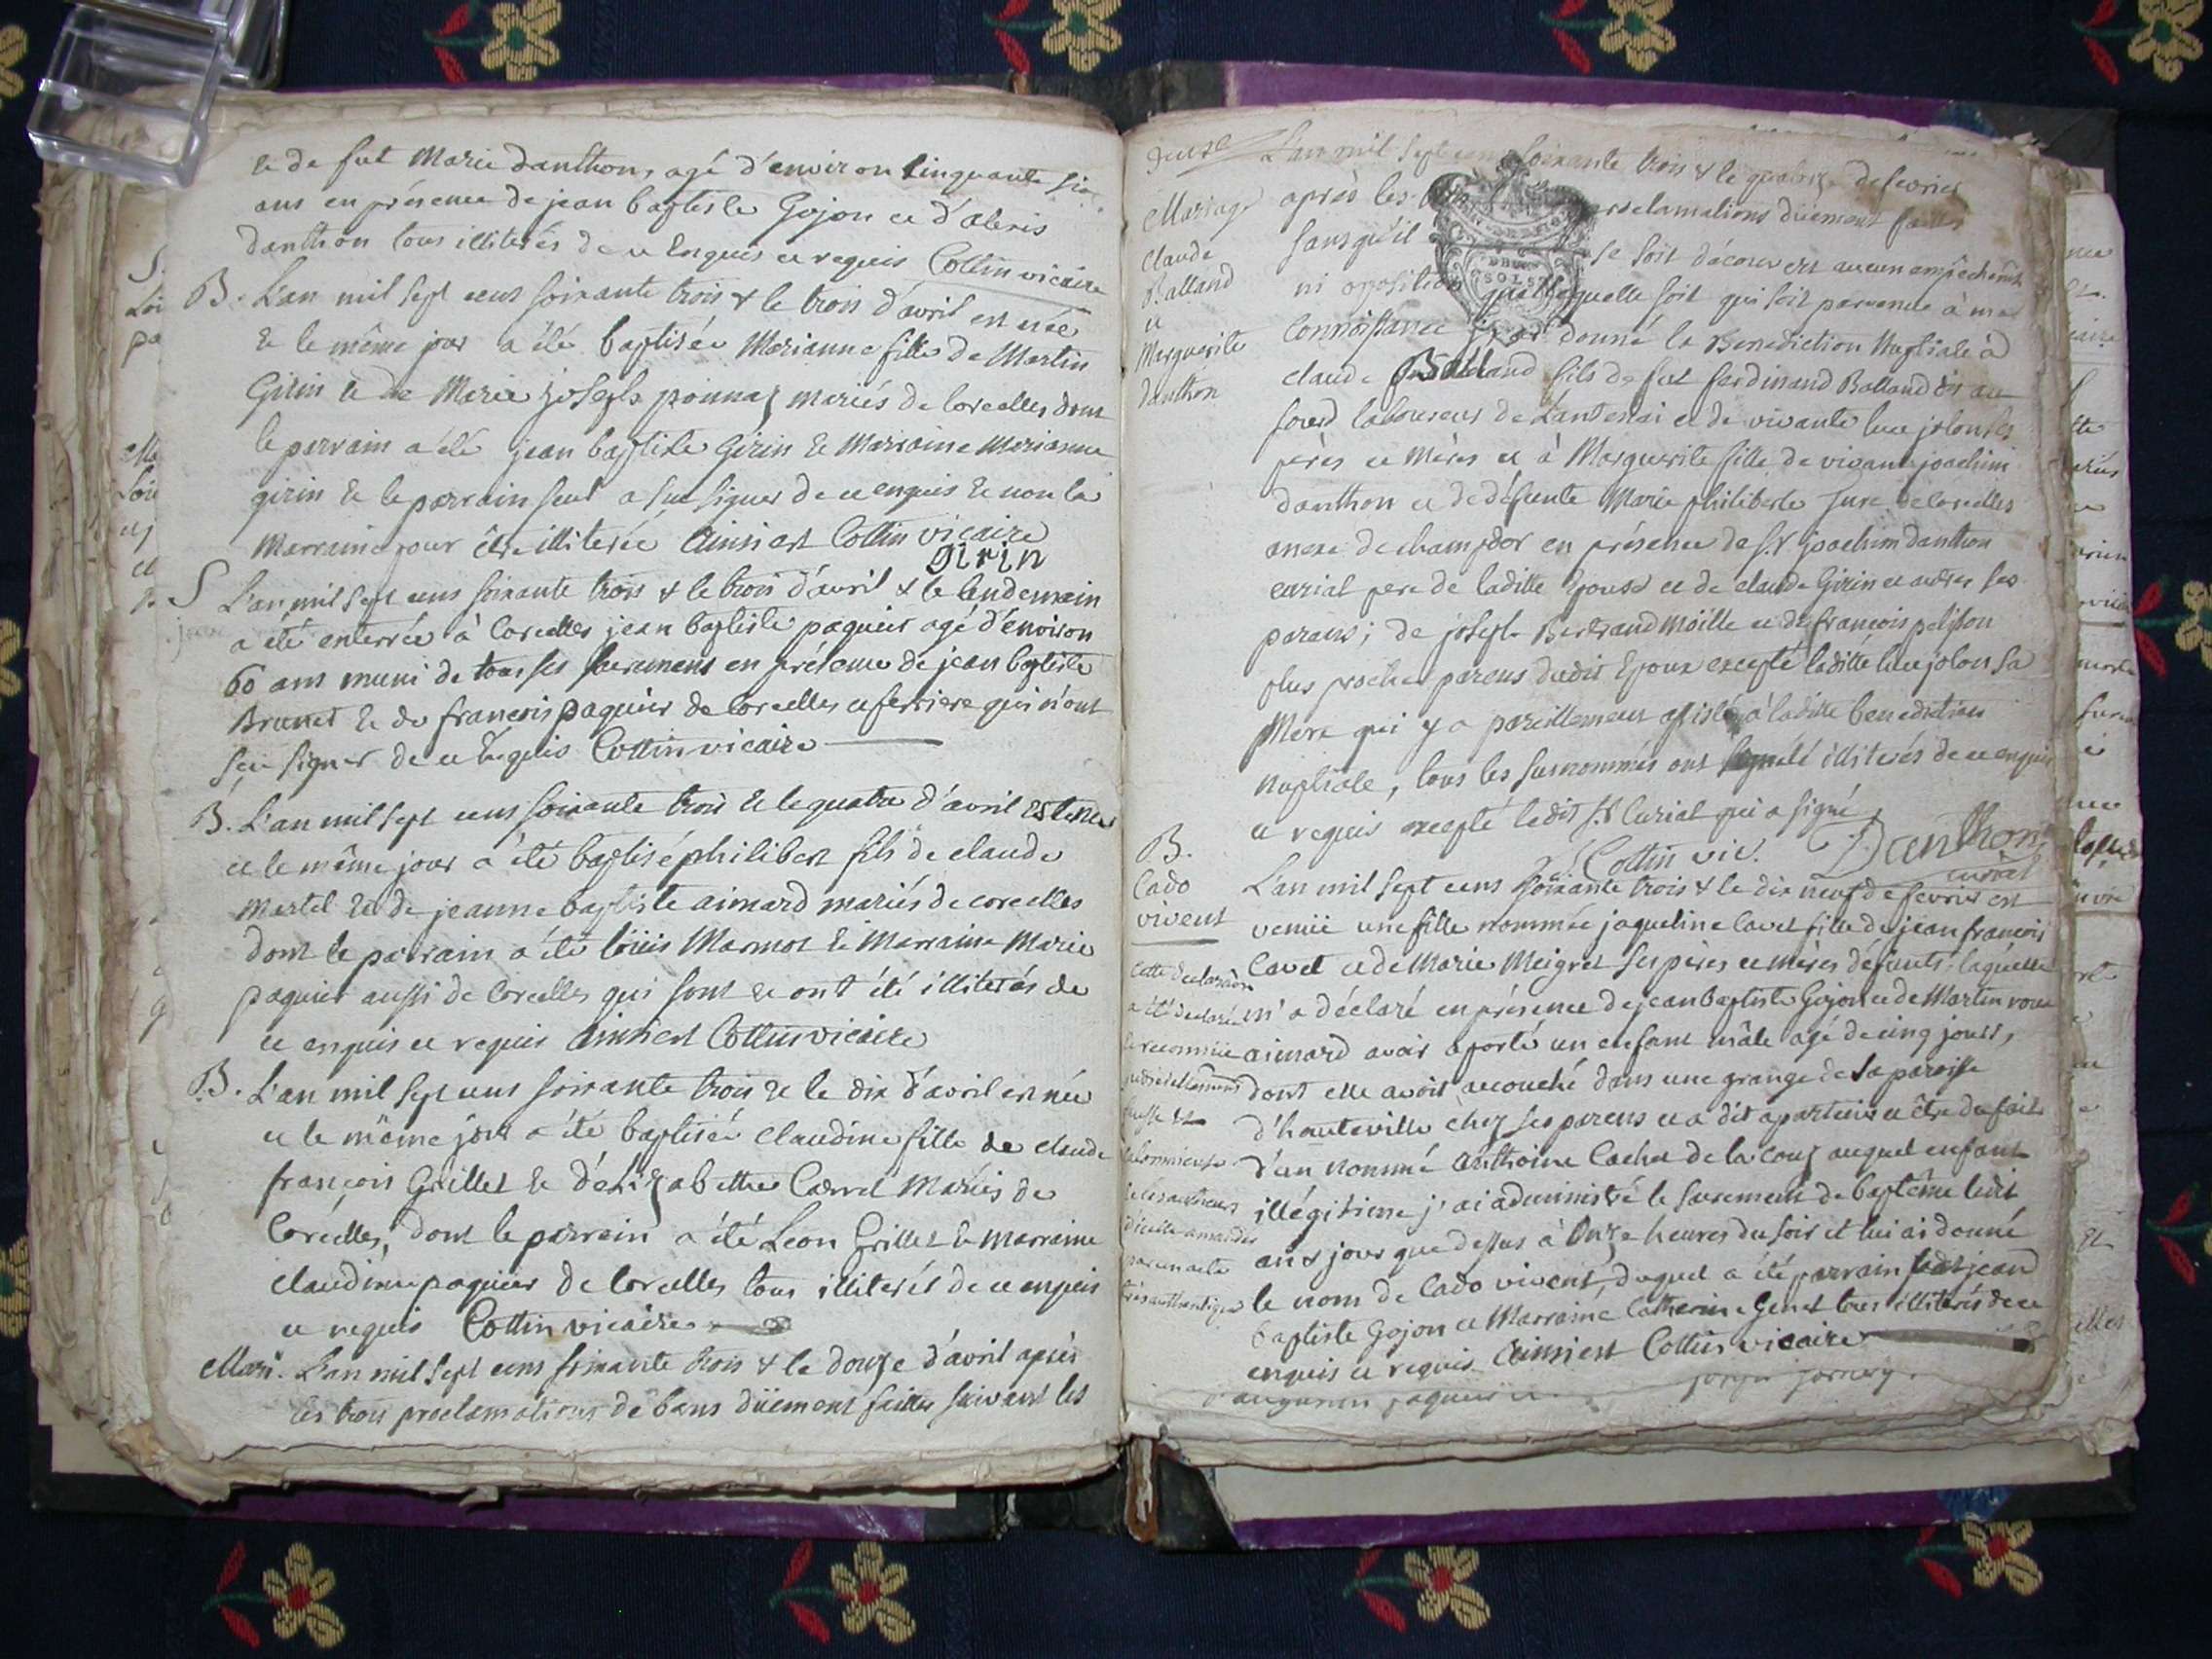 et de fut Marie Danthon, agé d'environ cinquante six
ans en présence de jean baptiste Gojon et d'alexis
danthon tous illiterés de ce Enquis et requis Cottin vicaire
B. L'an mil sept cens soixante trois & le trois d'avril est née
& le même jour a été baptisée Marianne fille de Martin
Girin & de Marie joseph ponnaz mariés de Corcelles dont
le parrain a été jean baptiste Girin & Marraine Marianne
girin & le parrain seul a sçu signer de ce enquis & non la
Marraine pour être illiterée Ainsi est Cottin vicaire
girin
S L'an mil sept cens soixante trois & le trois d'avril & le lendemain
a été enterrée à Corcelles jean baptiste paquier agé d'environ
60 ans muni de tous ses sacremens en présence de jean baptiste
Brunet & de francois paquier de Corcelles et ferriere qui n'ont
sçu signer de ce Enquis Cottin vicaire
B. L'an mil sept cens soixante trois & le quatre d'avril est né
et le même jour a été baptisé philibert fils de claude
Martel & de jeanne baptiste aimard mariés de corcelles
dont le parrain a été loüis Marmot & Marraine Marie
paquier aussi de Corcelles qui sont & ont été illiterés de
ce enquis et requis Ainsi est Cottin vicaire
B. L'an mil sept cens soixante trois & le dix d'avril est née
et le même jour a été baptisée Claudine fille de claude
françois Grillet & d'elizabethe Carrel Mariés de
Corcelles, dont le parrain a été Leon Grillet & marraine
claudine paquier de Corcelles tous illiterés de ce enquis
et requis Cottin vicaire
Mari. L'an mil sept cens soixante trois & le douze d'avril après
les trois proclamations de bans düement faites suivant les
L'an mil sept cens soixante trois & le quatorze de fevrier
Mariage après les proclamations düement faites
Claude sans qu'il se soit découvert aucun empêchement
Balland ni oposition quelle soit qui soit parvenue à ma
et
Marguerite Connoissance j'ai donné la Benediction Nuptiale à
danthon claude Balland fils de fut ferdinand Balland dis au
sourd laboureur de Lantenai et de vivante luce jolon ses
pères et Mères et à Marguerite fille de vivant joachim
danthon et de défunte Marie philiberte Jure de Corcelles
anexe de champdor en présence de s.r joachim danthon
curial pere de laditte Epouse et de claude Girin et autres ses
parens; de joseph Bertrand Moille et de françois pelisson
plus proches parens dudit Epoux excepté laditte luce jolon sa
Mere qui y a pareillement assisté à laditte benediction
nuptiale, tous les surnommés ont été illiterés de ce enquis
et requis excepté ledit s.r Curial qui a signé
Cottin vic. Danthon
curial
B. L'an mil sept cens soixante trois & le dix neuf de fevrier est
Cado
vivent venüe une fille nommée jaqueline Cavet fille de jean francois
Cavet et de Marie Meigret ses pères et mères défunts; laquelle
Cette declaraôn
a été declarée m'a déclaré en présence de jean baptiste Gojon et de Martin
aimard avoir aporté un enfant mâle agé de cinq jours,
dont elle avoit accouché dans une grange de sa paroisse
fausse &
d'hauteville chez ses parens et a dit apartenir et être du fait
calomnieuse d'un nommé Anthoine Cachet de la Couz auquel enfant
illégitime j'ai administré le sacrement de baptême ledit
ans jour que dessus à onze heures du soir et lui ai donné
par un acte
très authentique le nom de Cado vivent, duquel a été parrain ledit jean
baptiste Gojon et Marraine Catherine Genet tous illiterés de ce
enquis et requis Ainsi est Cottin vicaire